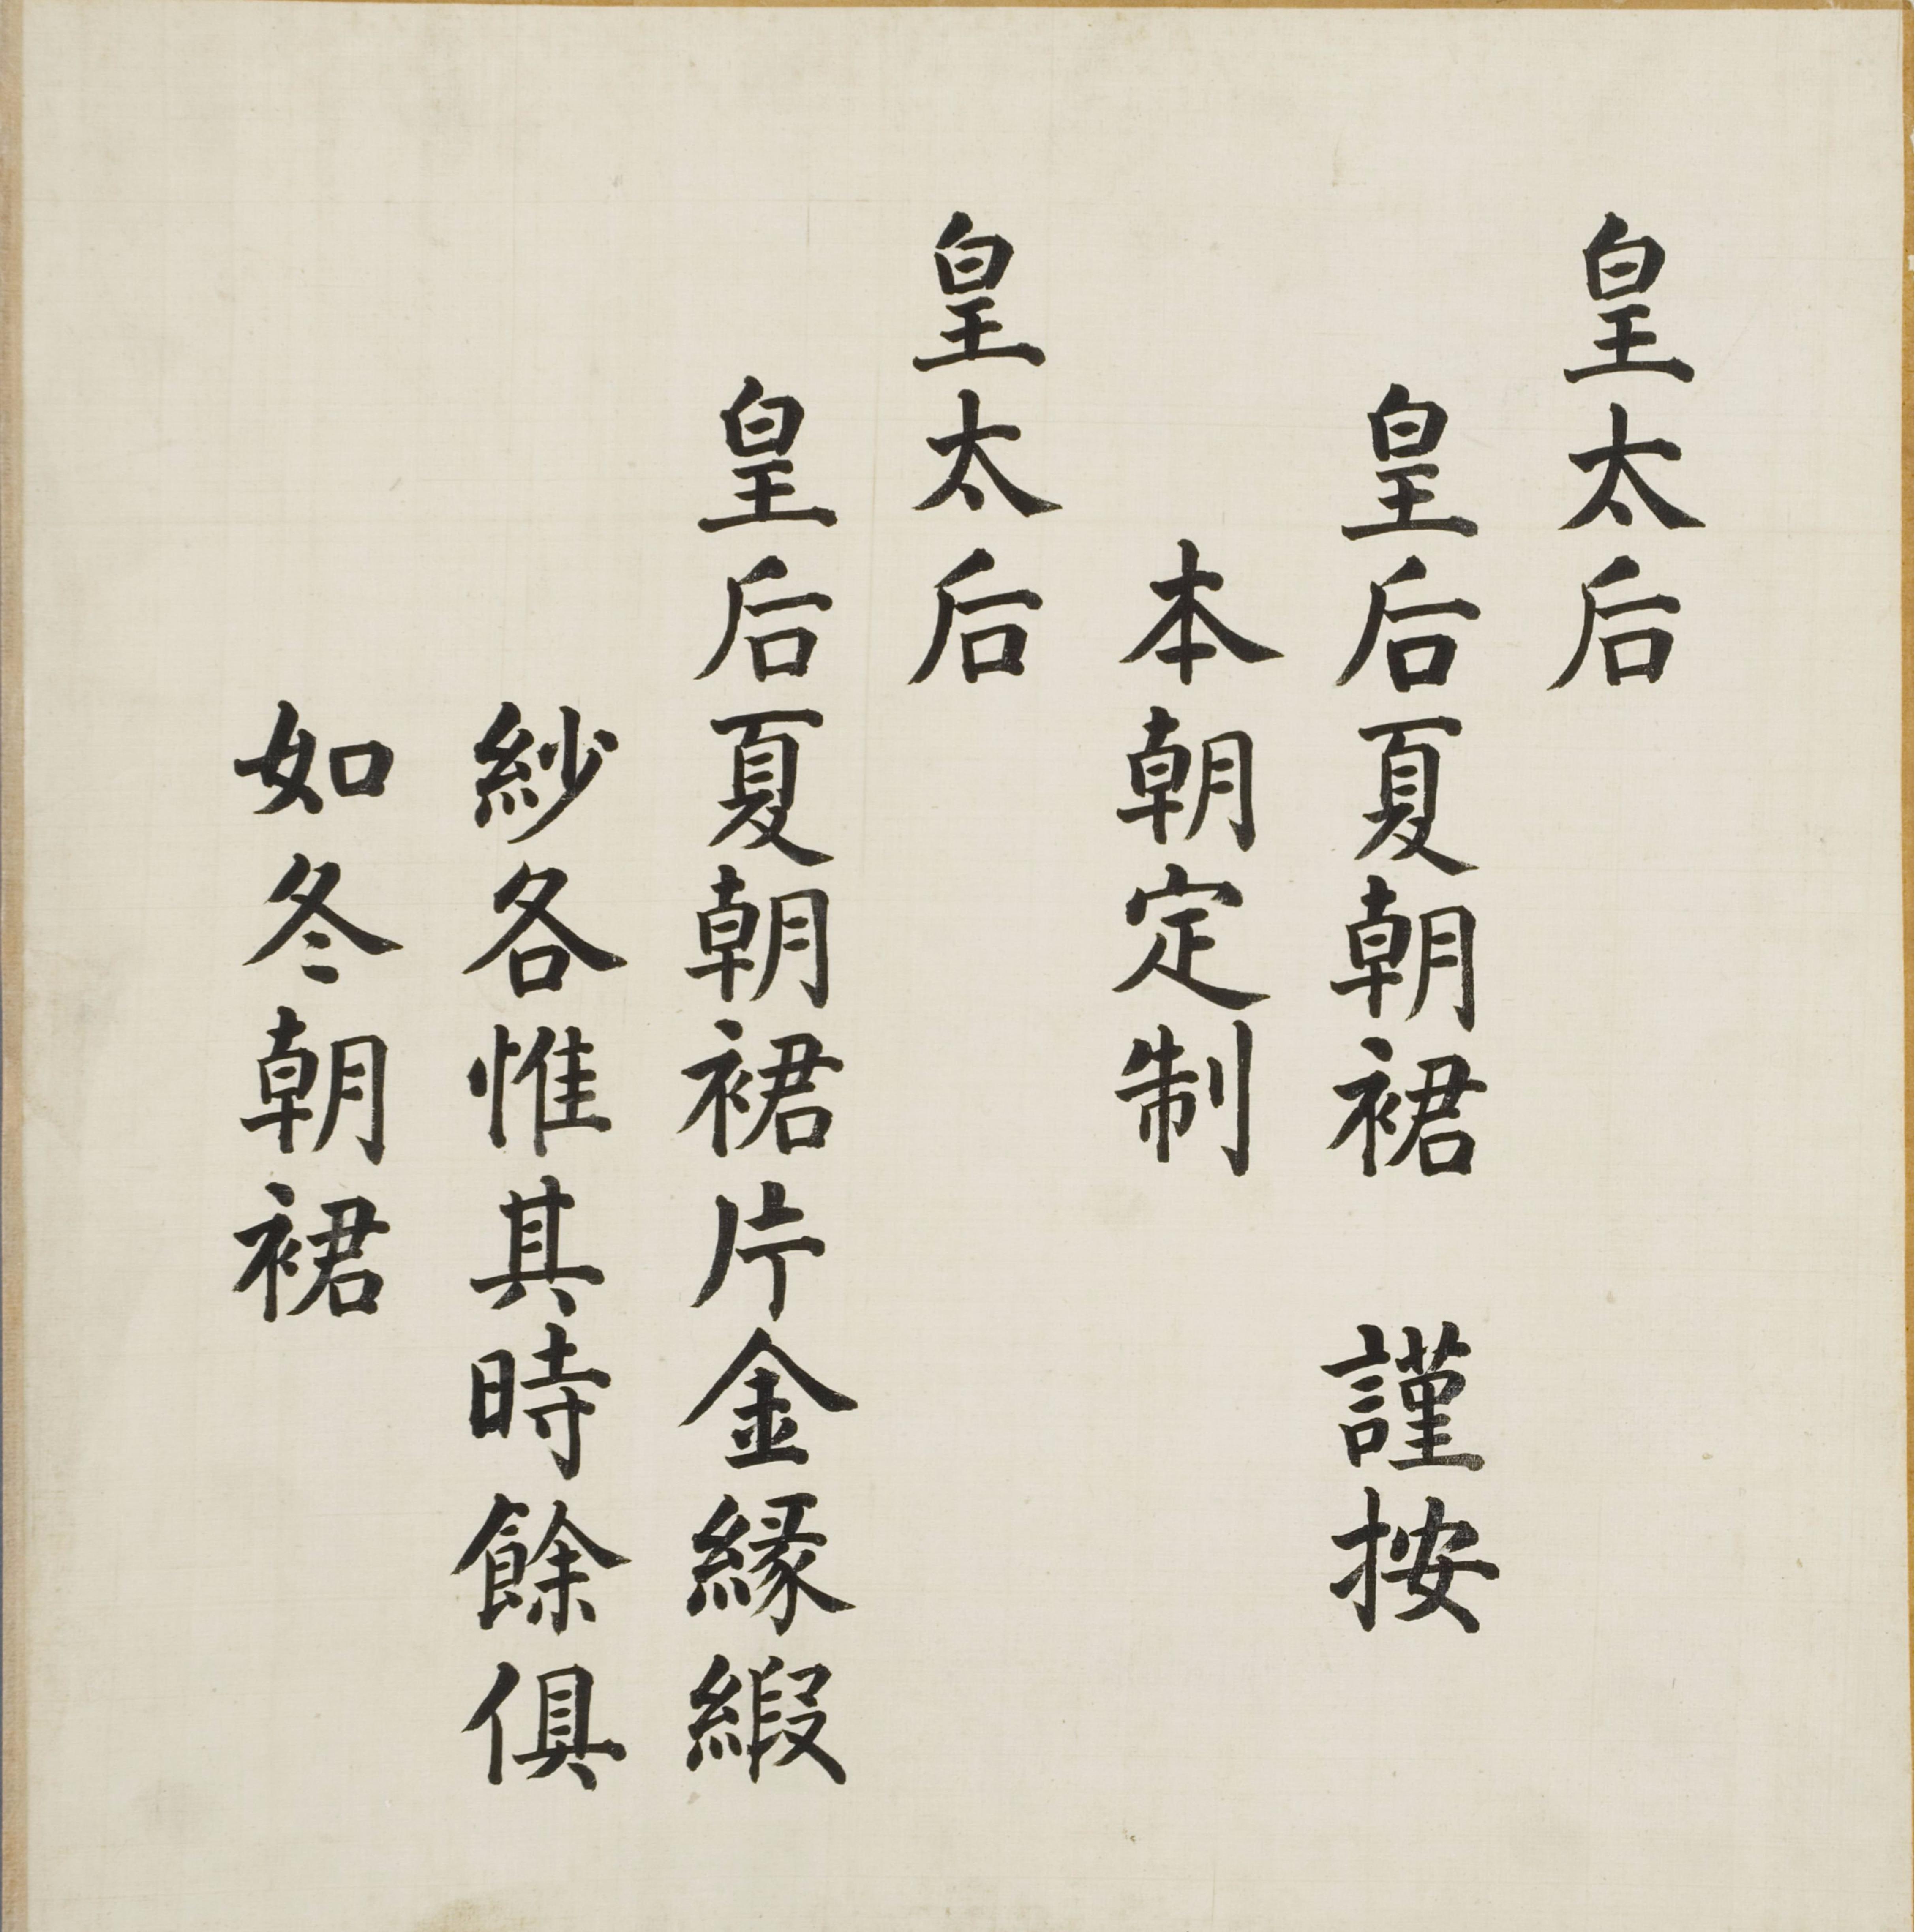 皇太后
皇后夏朝裙　謹按
本朝定制
皇太后
皇后夏朝裙片金緣緞
紗各惟其時餘俱
如冬朝裙